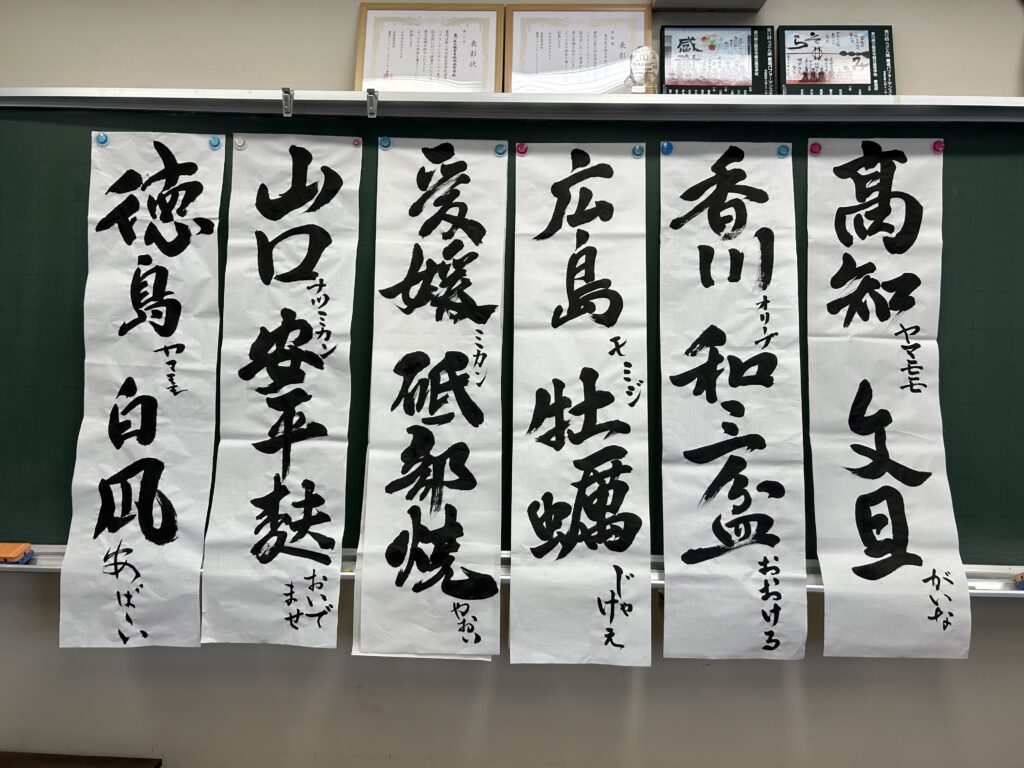 表彰状
表彰状
髙知
ヤマモモ
文旦
がいな
香川
オリーブ
和三盆
おおける
広島
モミジ
牡蠣
じゃけえ
愛媛
ミカン
砥部焼
やおい
山口
ナツミカン
安平麩
おいで
ませ
徳島
ヤマモモ
白
あばゝい